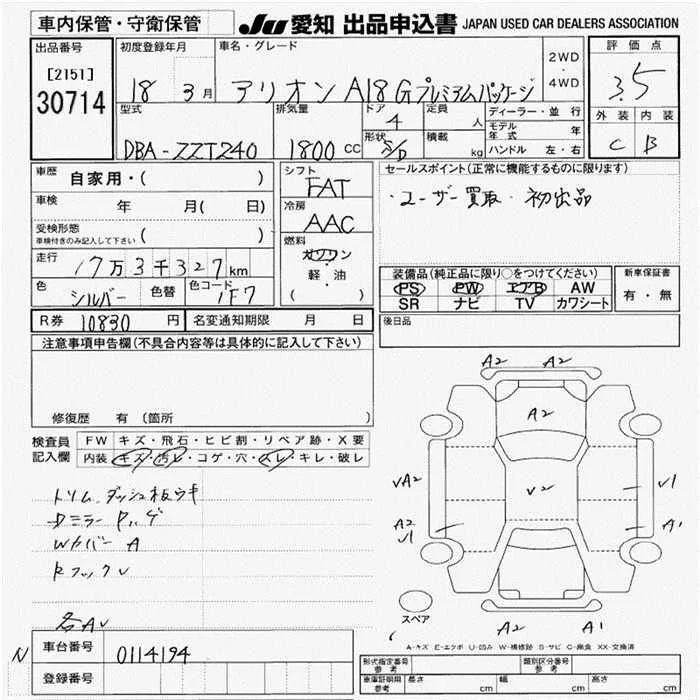 車内保管・守衛保管
JU 愛知 出品申込書 JAPAN USED CAR DEALERS ASSOCIATION
出品番号
[2151]
30714
初度登録年月
18 3月
車名・グレード
アリオン A18 Gプレミアムパッケージ
2WD
・
4WD
評価点
3.5
外装 内装
C B
型式
DBA-ZZT240
排気量
1800 CC
ドア
4
定員
人
形状
S/D
積載
kg
ディーラー・並行
モデル年式 年
ハンドル 左・右
車歴
自家用・( )
車検
年 月( 日)
受検形態
車検付きのみ記入して下さい ( )
走行
17万3千327km
色
シルバー
色替
色コード
1F7
シフト
FAT
冷房
AAC
燃料
ガソリン
・
軽・油
( )
セールスポイント(正常に機能するものに限ります)
・ユーザー買取・初出品
装備品(純正品に限り○をつけてください)
PS PW エアB AW
SR ナビ TV カワシート
新車保証書
有・無
R券 10830 円
名変通知期限 月 日
後日品
注意事項申告欄(不具合内容等は具体的に記入して下さい)
修復歴 有(箇所 )
検査員
記入欄
FW キズ・飛石・ヒビ割・リペア跡・X要
内装 キズ・汚レ・コゲ・穴・スレ・キレ・破レ
トリム、ダッシュ板ウキ
Dミラー Pハゲ
Wカバー A
RフックV
各AV
A2 A2
A2
VA2
V2
V1
A2
V1
A1
スペア
A2 A1
A-キズ E-エクボ U-凹み W-補修跡 S-サビ C-腐食 XX-交換済
N
車台番号
0114194
登録番号
形式指定番号
参考
類別区分番号
参考
車庫証明用
参考
長さ cm
幅 cm
高さ cm